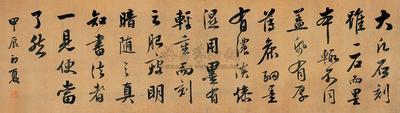 大凡石刻
雖一石而墨
本輒不同
蓋紙有厚
薄麁細墨
有濃淡燥
濕用墨有
輕重而刻
之肥瘦明
暗隨之真
知書法者
一見便當
了然
甲辰初夏